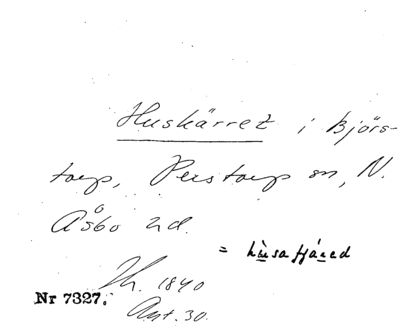 Huskärret i Björs-
torp, Perstorp sn, N.
Åsbo hd.
= hùsafjáred
Th. 1840
Nr 7327.
Avt. 30.